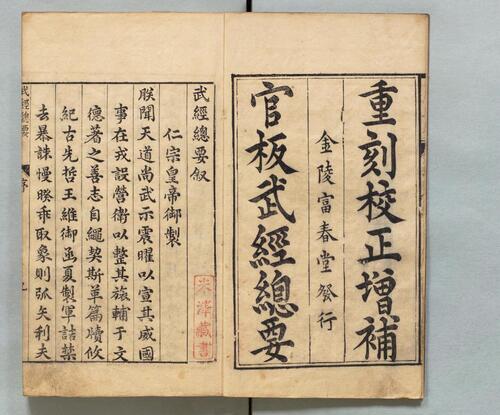 重刻校正增補
金陵富春堂發行
官板武經總要
武經總要叙
仁宗皇帝御製
朕聞天道尚武示震曜以宣其威國
事在戎設營衛以整其旅輔于文
德著之善志自繩契斯革篇牘攸
紀古先哲王維御函夏製軍詰禁
去暴誅慢暌乖取象則弧矢利夫
武經總要
序
藏書